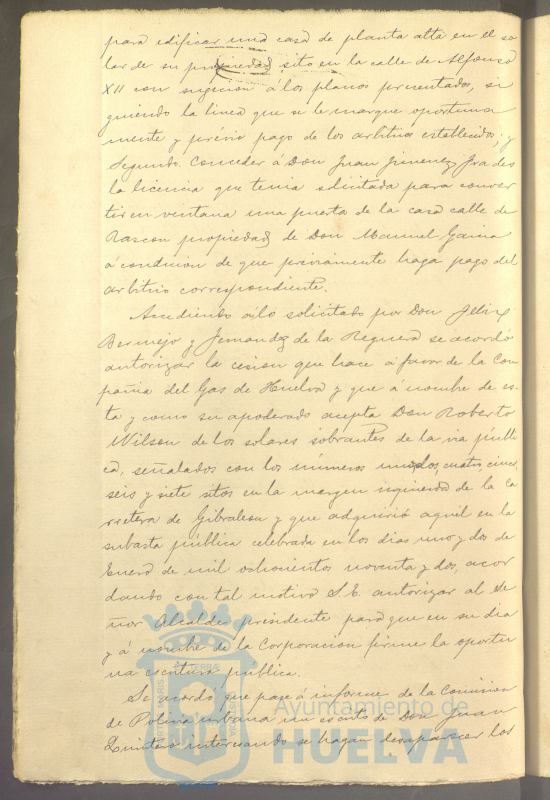 para edificar una casa de planta alta en el so
lar de su propiedad, sito en la calle de Alfonso
XII con sugecion á los planos presentados, si
guiendo la linea que se le marque oportuna
mente y prévio pago de los arbitrios establecidos; y
Segundo. Conceder á Don Juan Jimenez
la licencia que tenia solicitada para conver
tir en ventana una puerta de la casa calle de
Rascon propiedad de Don Manuel Garcia
á condicion de que préviamente haga pago del
arbitrio correspondiente.
Accediendo á lo solicitado por Don Felix
Bermejo y Fernandez de la Reguera se acordó
autorizar la cesion que hace á favor de la Com
pañia del Gas de Huelva y que á nombre de es
ta y como su apoderado acepta Don Roberto
Wilson de los solares sobrantes de la via públi
ca, señalados con los números uno, dos, cuatro, cinco,
seis y siete sitos en la margen izquierda de la Ca
rretera de Gibraleon y que adquirió aquel en la
subasta pública celebrada en los dias uno y dos de
Enero de mil ochocientos noventa y dos, acor
dando con tal motivo S.E. autorizar al Se
ñor Alcalde presidente para que en su dia
y á nombre de la Corporacion firme la oportu
na escritura pública.
Se acordó que pase á informe de la Comision
de Policia urbana un escrito de Don Juan
Quintero interesando se hagan desaparecer los
Ayuntamiento de
HUELVA